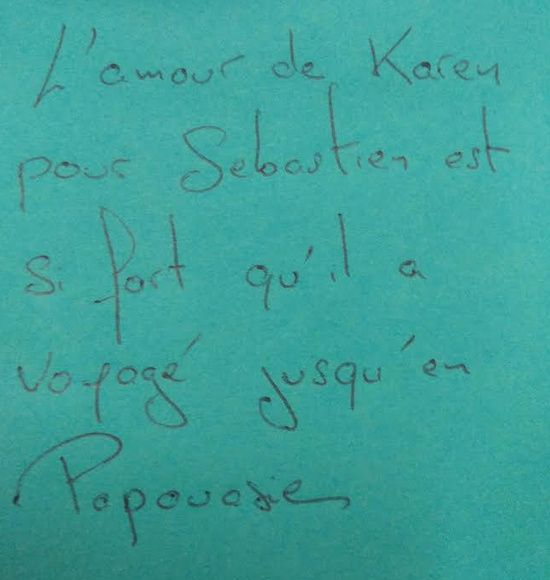 L'amour de Karen
pour Sebastien est
si fort qu'il a
voyagé jusqu'en
Papouasie